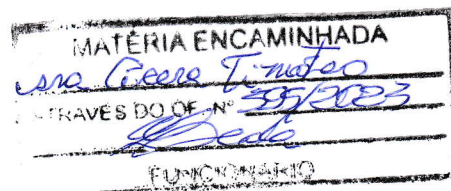 MATÉRIA ENCAMINHADA
Sra Cícera Timóteo
ATRAVÉS DO OF. Nº 395/2023
FUNCIONÁRIO